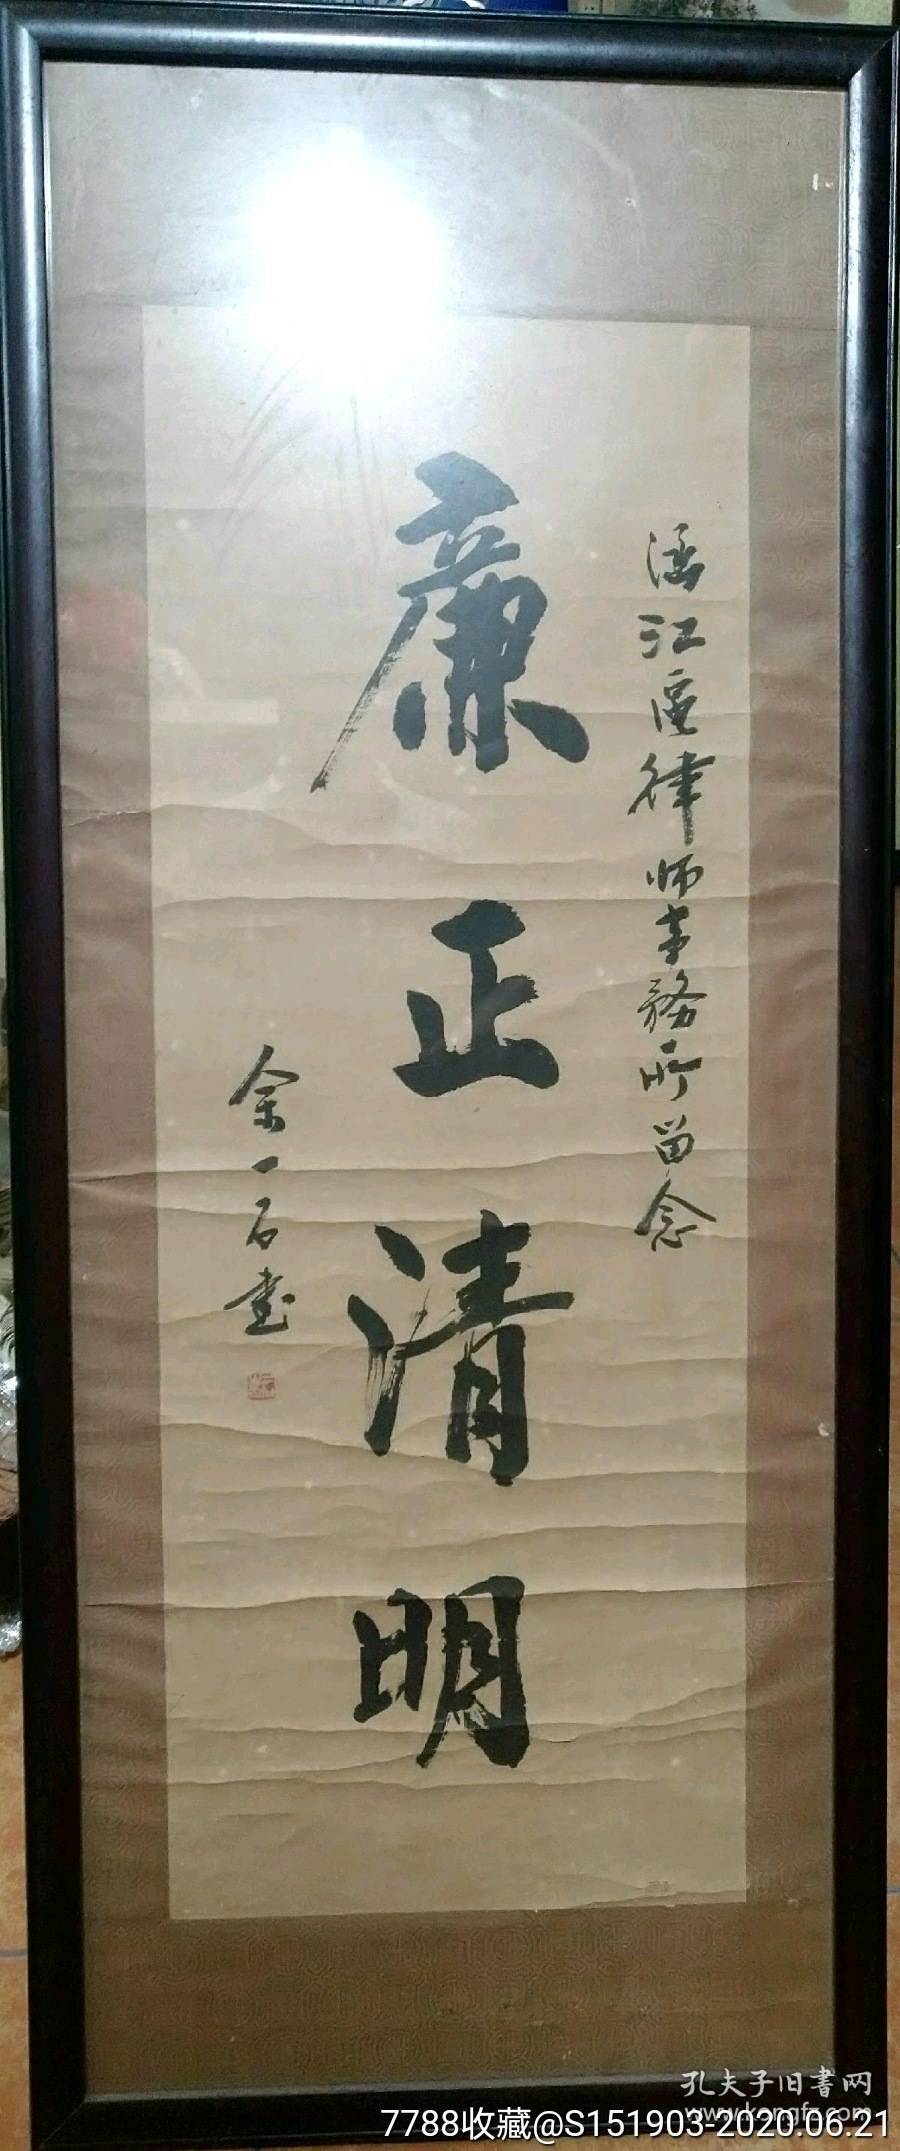 涵江區律师事務所留念
廉正清明
余一石書
孔夫子旧書网
www.kongfz.com
7788收藏@S151903-2020.06.21